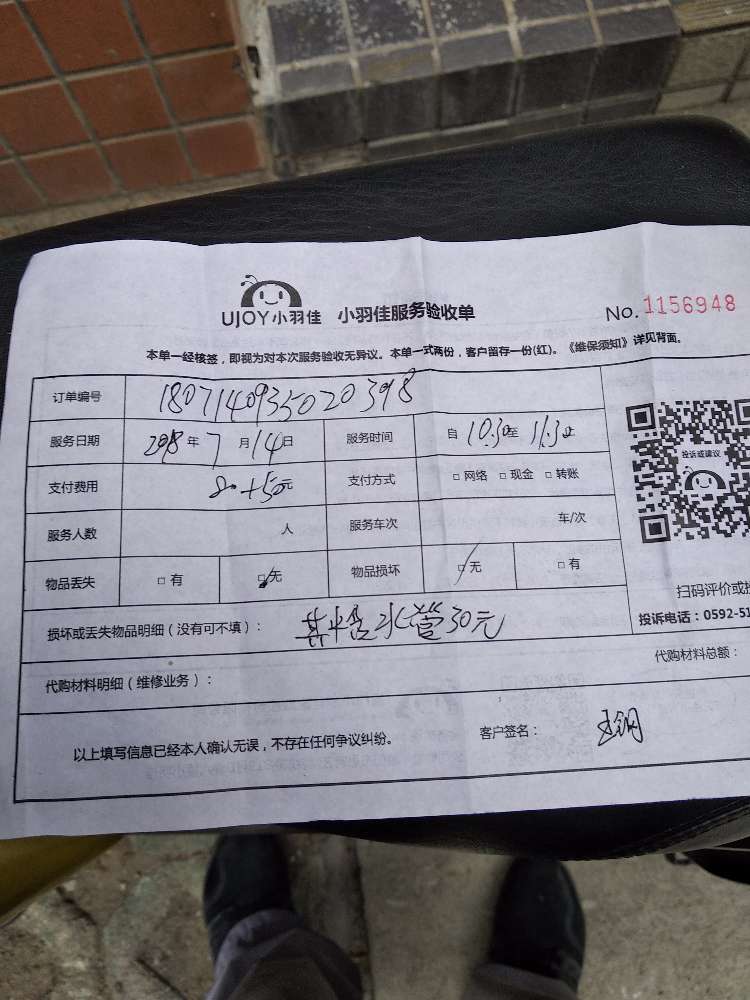 UJOY小羽佳 小羽佳服务验收单 No.1156948
本单一经核签，即视为对本次服务验收无异议。本单一式两份，客户留存一份(红)。《维保须知》详见背面。
订单编号 1807140935020398
服务日期 2018年7月14日 服务时间 自10:30至11:30止
支付费用 80+50元 支付方式 □网络 □现金 □转账
服务人数 人 服务车次 车/次
物品丢失 □有 □无 物品损坏 □无 □有
投诉或建议
扫码评价或投
投诉电话：0592-51
损坏或丢失物品明细（没有可不填）： 其中含水管30元
代购材料明细（维修业务）： 代购材料总额：
以上填写信息已经本人确认无误，不存在任何争议纠纷。 客户签名：